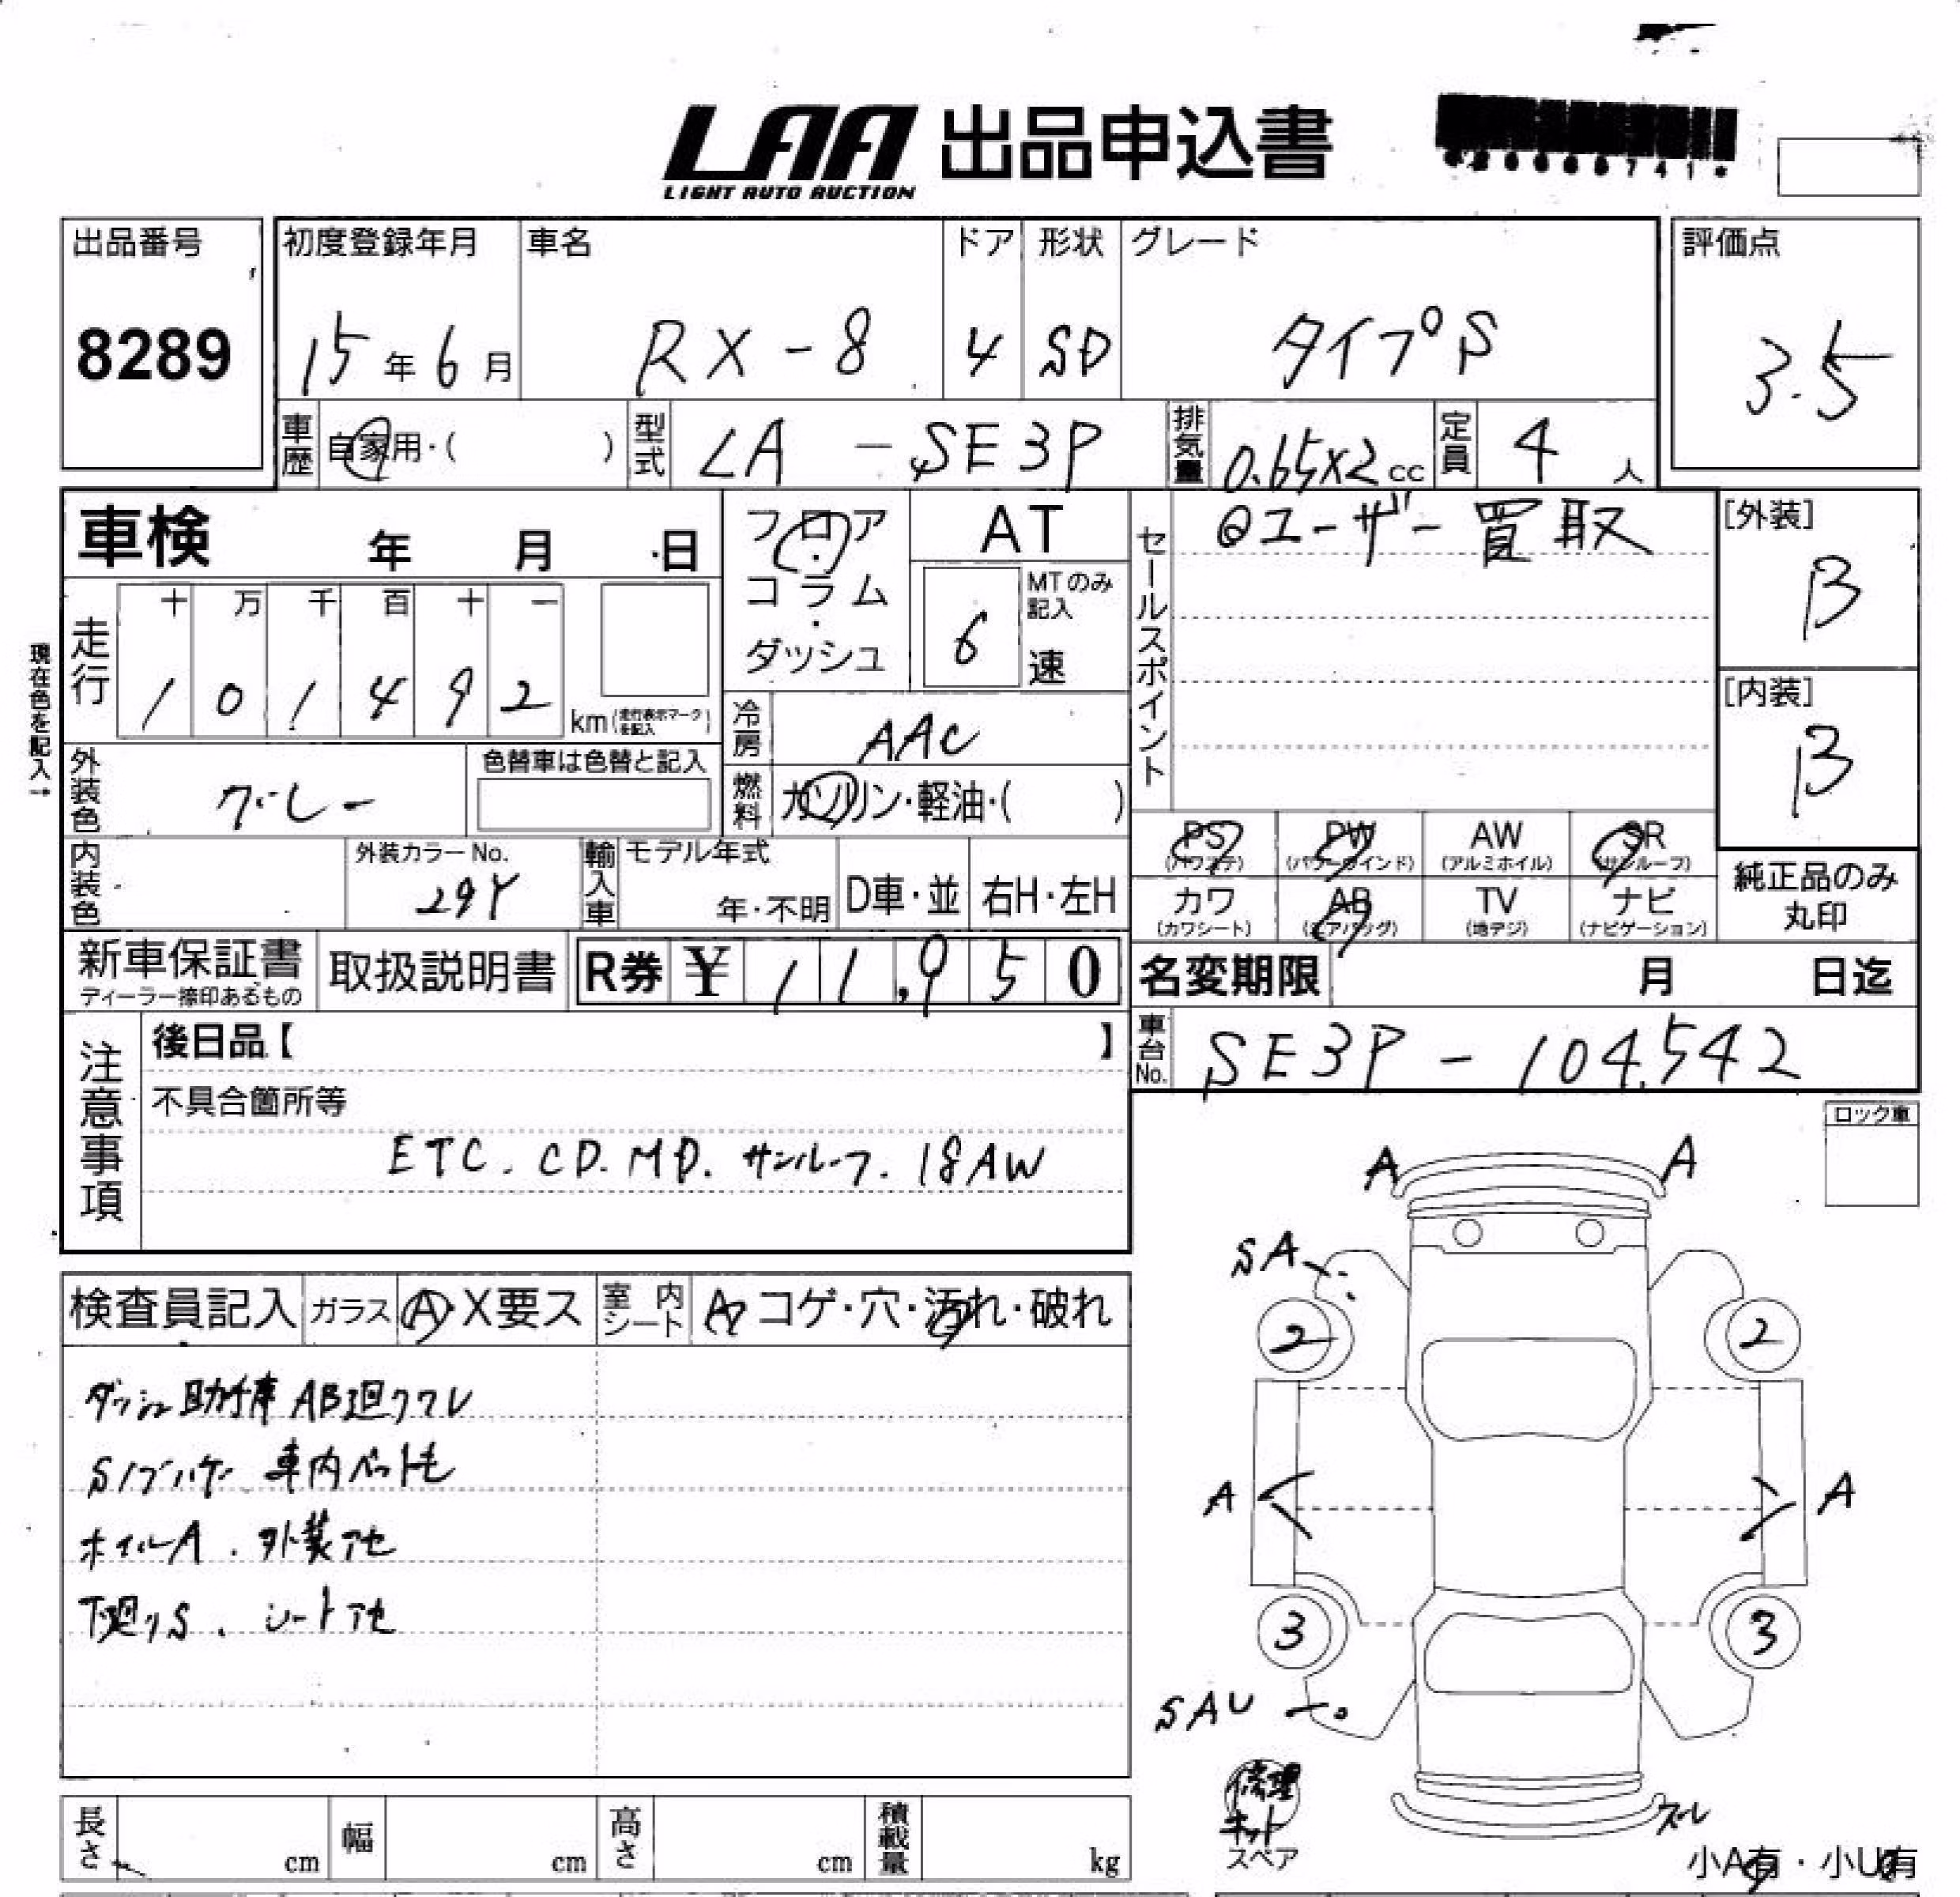 LAA 出品申込書
LIGHT AUTO AUCTION
出品番号
8289
初度登録年月
15年6月
車名
RX-8
ドア
4
形状
SD
グレード
タイプS
評価点
3.5
車歴
自家用・( )
型式
LA-SE3P
排気量
0.65×2cc
定員
4人
車検 年 月 日
フロア・コラム・ダッシュ
AT
MTのみ記入
6速
セールスポイント
◎ユーザー買取
[外装]
B
[内装]
B
現在色を記入→
走行
十 万 千 百 十 一
1 0 1 4 9 2
km(走行表示マークを記入)
冷房
AAC
外装色
グレー
色替車は色替と記入
燃料
ガソリン・軽油・( )
内装色
外装カラーNo.
29Y
輸入車
モデル年式
年・不明
D車・並
右H・左H
PS (パワステ)
PW (パワーウインド)
AW (アルミホイル)
SR (サンルーフ)
カワ (カワシート)
AB (エアバッグ)
TV (地デジ)
ナビ (ナビゲーション)
純正品のみ丸印
新車保証書
ディーラー捺印あるもの
取扱説明書
R券 ¥11,950
名変期限 月 日迄
車台No.
SE3P-104542
注意事項
後日品【 】
不具合箇所等
ETC. CD. MD. サンルーフ. 18AW
ロック車
検査員記入
ガラス
A・X要ス
室内シート
A・コゲ・穴・汚れ・破れ
ダッシュ 助手庫 AB廻ウワレ
Sノブハゲ 車内ペット毛
ホイルA. 外装アセ
下廻りS. シートアセ
A A
SA
2 2
A A
3 3
SAU
修理キット
スペア
ズレ
小A有・小U有
長さ cm
幅 cm
高さ cm
積載量 kg